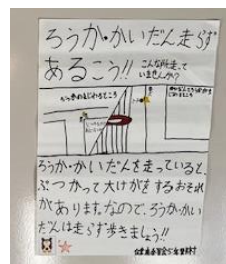 ろうか・かいだん走らず
あるこう!!
こんな所走って
いませんか?
ろうか・かいだんを走っていると、
ぶつかって大けがをするおそれ
があります。なので、ろうか・かい
だんは走らず歩きましょう!!